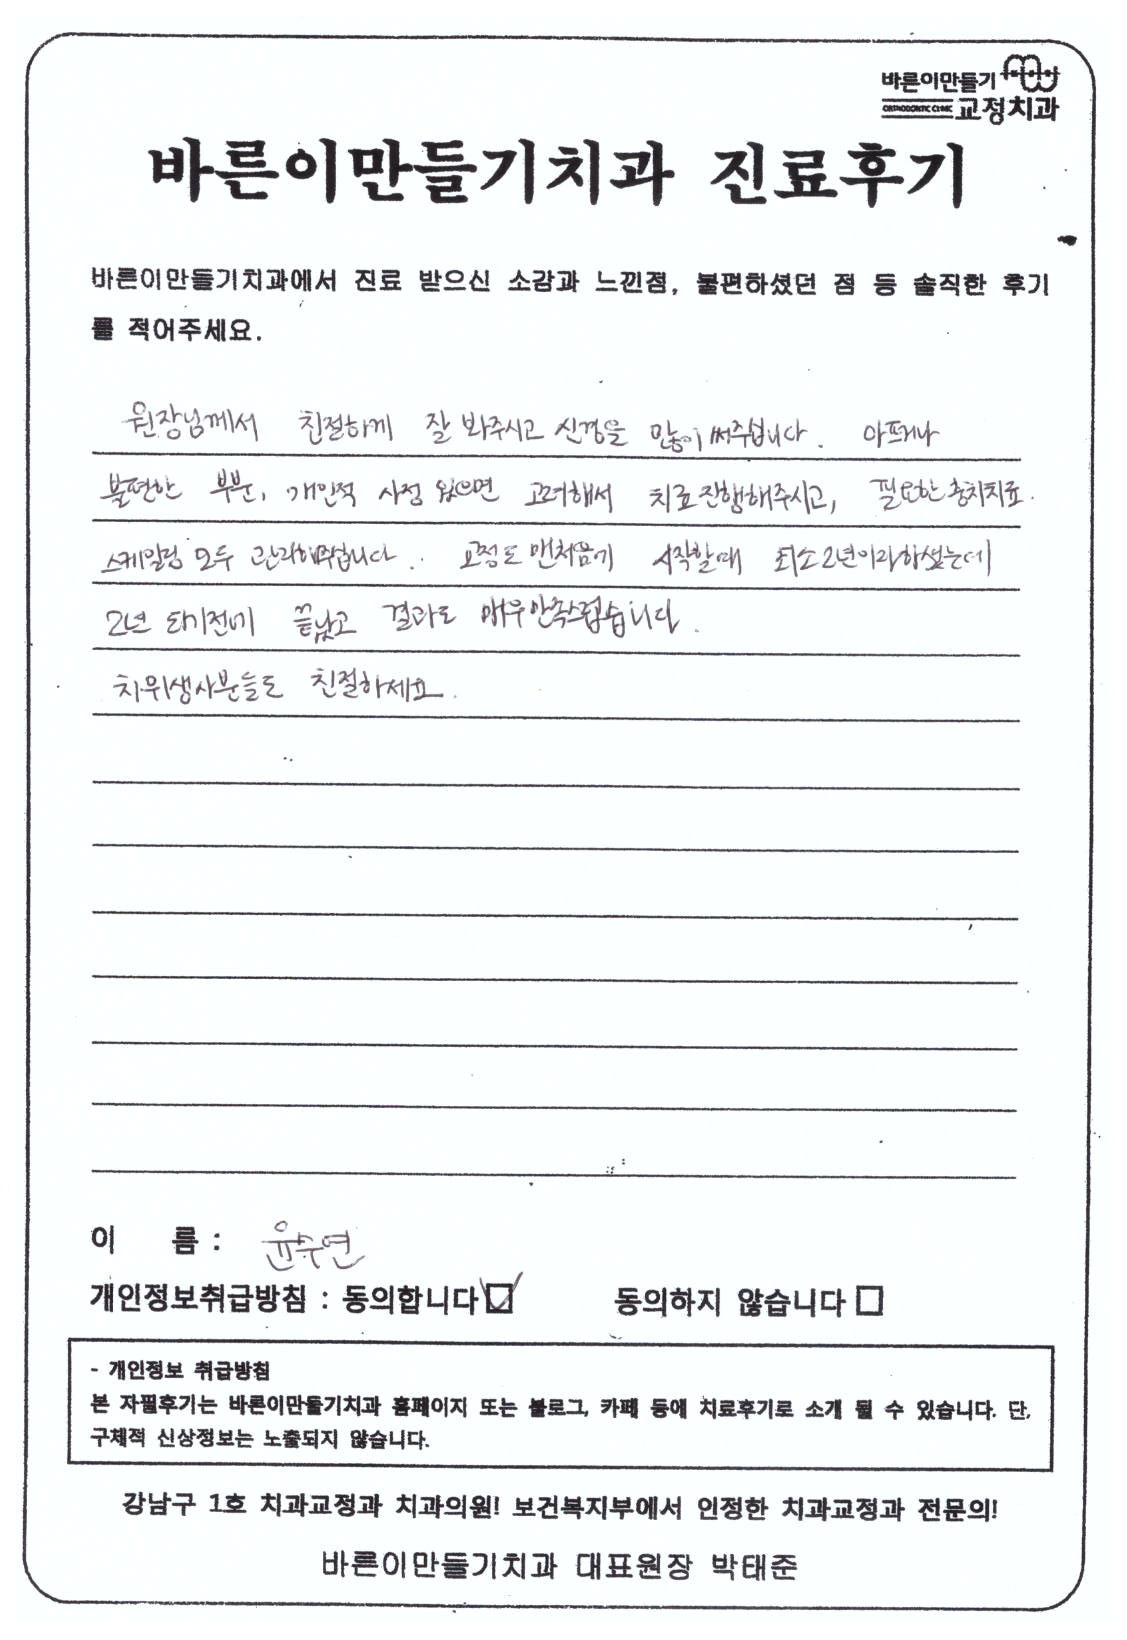 바른이만들기
ORTHODONTIC CLINIC 교정치과
바른이만들기치과 진료후기
바른이만들기치과에서 진료 받으신 소감과 느낀점, 불편하셨던 점 등 솔직한 후기
를 적어주세요.
원장님께서 친절하게 잘 봐주시고 신경을 많이 써주십니다. 아프거나
불편한 부분, 개인적 사정 있으면 고려해서 치료진행해주시고, 필요한 충치치료.
스케일링 모두 관리해주십니다.. 교정도 맨처음에 시작할때 최소 2년이라하셨는데
2년 되기전에 끝났고 결과도 매우만족스럽습니다.
치위생사분들도 친절하세요.
이 름 : 윤수연
개인정보취급방침 : 동의합니다 동의하지 않습니다
- 개인정보 취급방침
본 자필후기는 바른이만들기치과 홈페이지 또는 블로그, 카페 등에 치료후기로 소개 될 수 있습니다. 단,
구체적 신상정보는 노출되지 않습니다.
강남구 1호 치과교정과 치과의원! 보건복지부에서 인정한 치과교정과 전문의!
바른이만들기치과 대표원장 박태준